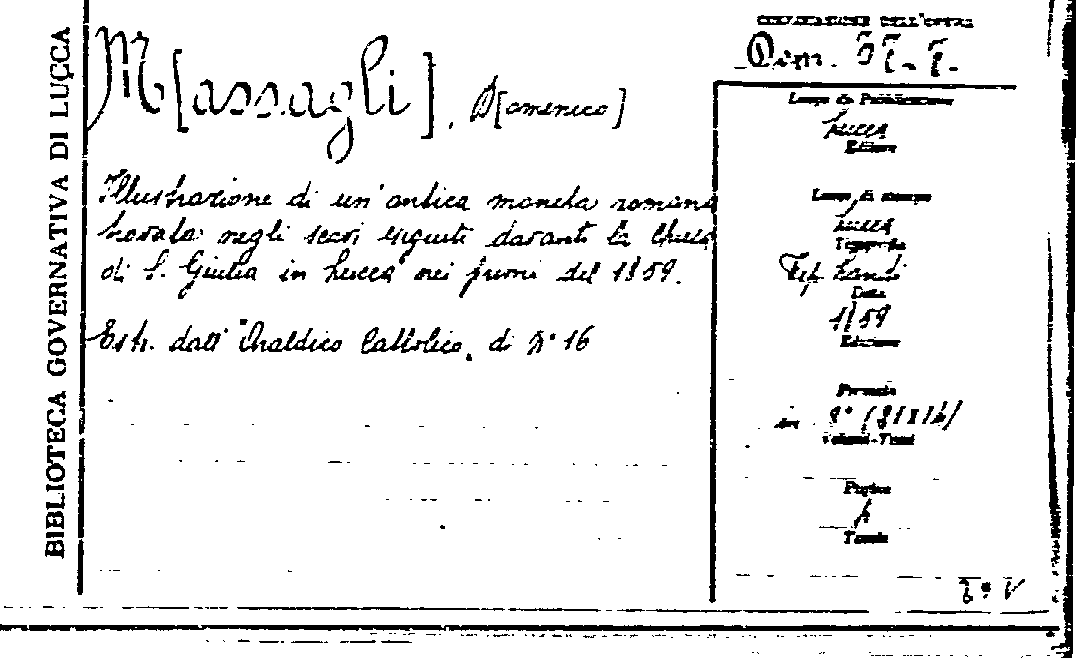 BIBLIOTECA GOVERNATIVA DI LUCCA
M[assagli], D[omenico]
Illustrazione di un'antica moneta romana
trovata negli scavi eseguiti davanti la Chiesa
di S. Giulia in Lucca nei primi del 1859.
Estr. dall' "Araldico Cattolico" di N° 16
COLLOCAZIONE DELL'OPERA
Luogo di Pubblicazione
Lucca
Editore
Luogo di stampa
Lucca
Tipografia
Tip. Landi
Data
1859
Edizione
Formato
in 8°
Volumi-Tomi
Pagine
Tavole